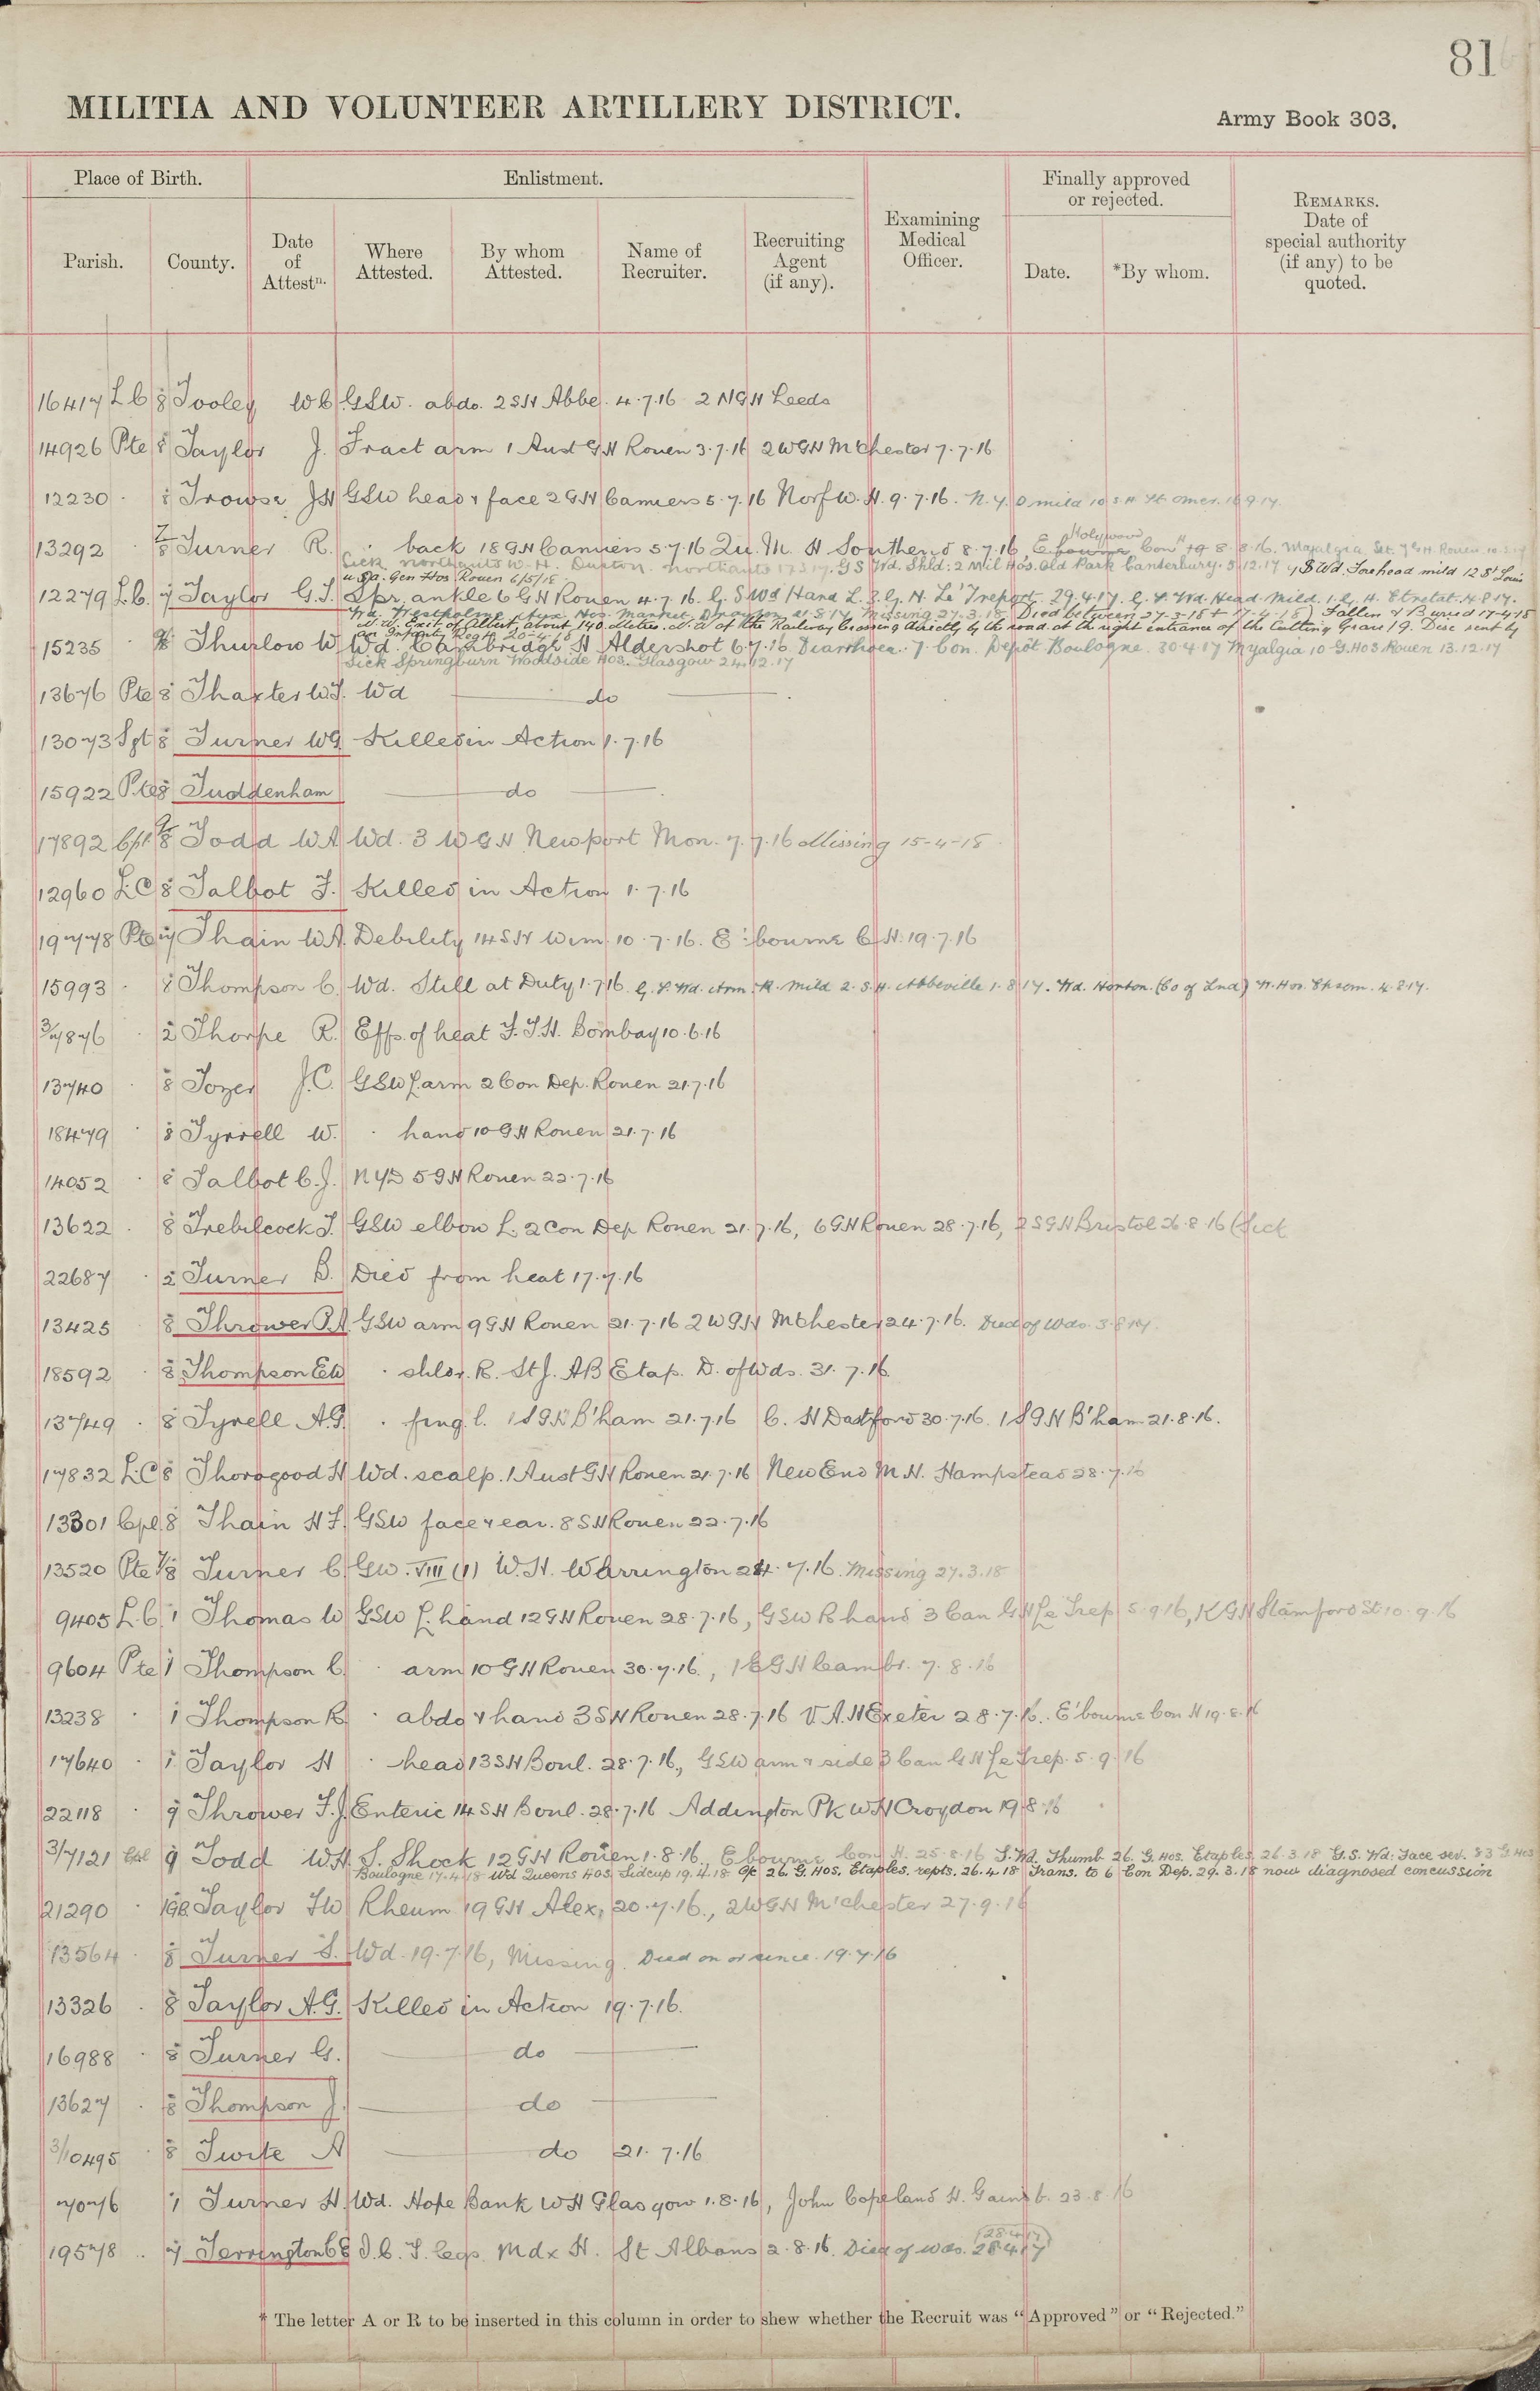 81
MILITIA AND VOLUNTEER ARTILLERY DISTRICT.
Army Book 303.
Place of Birth.
Enlistment.
Finally approved or rejected.
REMARKS. Date of special authority (if any) to be quoted.
Parish.
County.
Date of Attestn.
Where Attested.
By whom Attested.
Name of Recruiter.
Recruiting Agent (if any).
Examining Medical Officer.
Date.
*By whom.
16417 L.C 8 Tooley W C GSW. abdo. 2 SH Abbe. 4.7.16 2 NGH Leeds
14926 Pte 8 Taylor J. Fract arm 1 Aust GH Rouen 3.7.16 2WGH MChester 7.7.16
12230 . 8 Trowse JH GSW head & face 2 GH Camiers 5.7.16 Norf W.H. 9.7.16. N.Y.D mild 10 S H St Omer. 16.9.17.
13292 . 7/8 Turner R. . back 18 GH Camiers 5.7.16 Qu. M. H Southend 8.7.16, Holywood Con H 8.8.16. Myalgia
Sick Northants W.H. Duston. Northants 17.5.17. G S Wd. Shld: 2 Mil Hos. Old Park Canterbury. 5.12.17 G S Wd. Forehead mild 12 St Louis
U.S.A. Gen Hos Rouen 6/5/18
12279 L.C. 7 Taylor G.J. Spr. ankle 6 GH Rouen 4.7.16. G. S Wd Hand L. 3. G. H. Le Treport. 29.4.17. G. S. Wd. Head. Mild. 1. G. H. Etretat. 4.8.17.
Wd. Westholme Aux. Hos. Market Drayton 21.8.17 Missing 27.3.18 (Died between 27-3-18 + 17-4-18) Fallen & Buried 17-4-18
N.W. Exit of Albert, about 140 Metres. N.W of the Railway Crossing directly by the road. at the right entrance of the Cutting Grave 19. Disc sent by
an Infantry Regt. 20-4-18
15235 8 Thurlow W Wd. Cambridge H Aldershot 6.7.16 Diarrhoea. 7 Con. Depôt Boulogne. 30.4.17 Myalgia 10 G.Hos Rouen 13.12.17
Sick Springburn Woodside Hos. Glasgow 24.12.17
13676 Pte 8 Thaxter W.J. Wd do
13073 Sgt 8 Turner WG Killed in Action 1.7.16
15922 Pte 8 Tuddenham do
17892 Cpl. 8 Todd W A Wd. 3 W G H Newport Mon. 7.7.16 Missing 15-4-18
12960 L.C 8 Talbot F. Killed in Action 1.7.16
19778 Pte 7 Thain W.A. Debility 14 S H Wim. 10.7.16. E'bourne C H. 19.7.16
15993 . 8 Thompson C. Wd. Still at Duty 1.7.16 G. S. Wd. Arm. R. Mild 2. S. H. Abbeville 1.8.17. Wd. Horton. (Co of Lnd) W. Hos. Epsom. 4.8.17.
3/7876 . 2 Thorpe R. Effs. of heat F.T.H. Bombay 10.6.16
13740 . 8 Tozer J.C. GSW f.arm 2 Con Dep. Rouen 21.7.16
18479 . 8 Tyrrell W. . hand 10 GH Rouen 21.7.16
14052 . 8 Talbot C.J. NYD 5 GH Rouen 22.7.16
13622 . 8 Trebilcock J. GSW elbow L. 2 Con Dep Rouen 21.7.16, 6 GH Rouen 28.7.16, 2 SGH Bristol 26.8.16 (Sick
22687 . 2 Turner B. Died from heat 17.7.16
13425 8 Thrower P.A GSW arm 9 GH Rouen 21.7.16 2 WGH MChester 24.7.16. Died of Wds. 3.8.17.
18592 . 8 Thompson EW . shldr. R. St J. AB Etap. D. of Wds. 31.7.16
13749 . 8 Tyrell A.G. . fing. l. 1 SGH B'ham 21.7.16 C. H Dartford 30.7.16. 1 SGH B'ham 21.8.16.
17832 L.C 8 Thorogood H Wd. scalp. 1 Aust GH Rouen 21.7.16 New End M.H. Hampstead 28.7.16
13301 Cpl. 8 Thain H F. GSW face & ear. 8 SH Rouen 22.7.16
13520 Pte 7/8 Turner C. GW. VIII (1) W.H. Warrington 24.7.16. Missing 27.3.18
9405 L.C. 1 Thomas W GSW L. hand 12 GH Rouen 28.7.16, GSW R hand 3 Can GH Le Trep 5.9.16, KGH Stamford St 10.9.16
9604 Pte 1 Thompson C. . arm 10 GH Rouen 30.7.16, 1 EGH Cambr. 7.8.16
13238 . 1 Thompson R. . abdo & hand 3 SH Rouen 28.7.16 V.A.H Exeter 28.7.16. E'bourne Con H 19.8.16
17640 . 1 Taylor H . head 13 SH Boul. 28.7.16, GSW arm & side 3 Can GH Le Trep. 5.9.16
22118 . 9 Thrower F.J. Enteric 14 SH Boul. 28.7.16 Addington Pk WH Croydon 19.8.16
3/7121 Cpl 9 Todd W.H. S. Shock 12 GH Rouen 1.8.16. E'bourne Con H. 25.8.16 S. Wd. Thumb. 26. G. Hos. Etaples. 26.3.18 G.S. Wd: Face sev. 83 G Hos
Boulogne 17.4.18 Wd Queens Hos. Sidcup 19.4.18 O/c 26. G. Hos. Etaples. repts. 26.4.18 Trans. to 6 Con Dep. 29.3.18 now diagnosed concussion
21290 . 1 GB Taylor JW Rheum 19 GH Alex, 20.7.16., 2 WGH M'chester 27.9.16
13564 . 8 Turner S. Wd. 19.7.16, Missing. Died on or since. 19.7.16
13326 . 8 Taylor A.G. Killed in Action 19.7.16.
16988 . 8 Turner G. do
13627 . 8 Thompson J. do
3/10495 8 Twite A do 21.7.16
7076 1 Turner H. Wd. Hope Bank WH Glasgow 1.8.16, John Copeland H. Gainsb. 23.8.16
19578 .. 7 Terrington C E I.C.T. legs. Mdx H. St Albans 2.8.16. Died of Wds. 28.4.17
* The letter A or R to be inserted in this column in order to shew whether the Recruit was "Approved" or "Rejected."